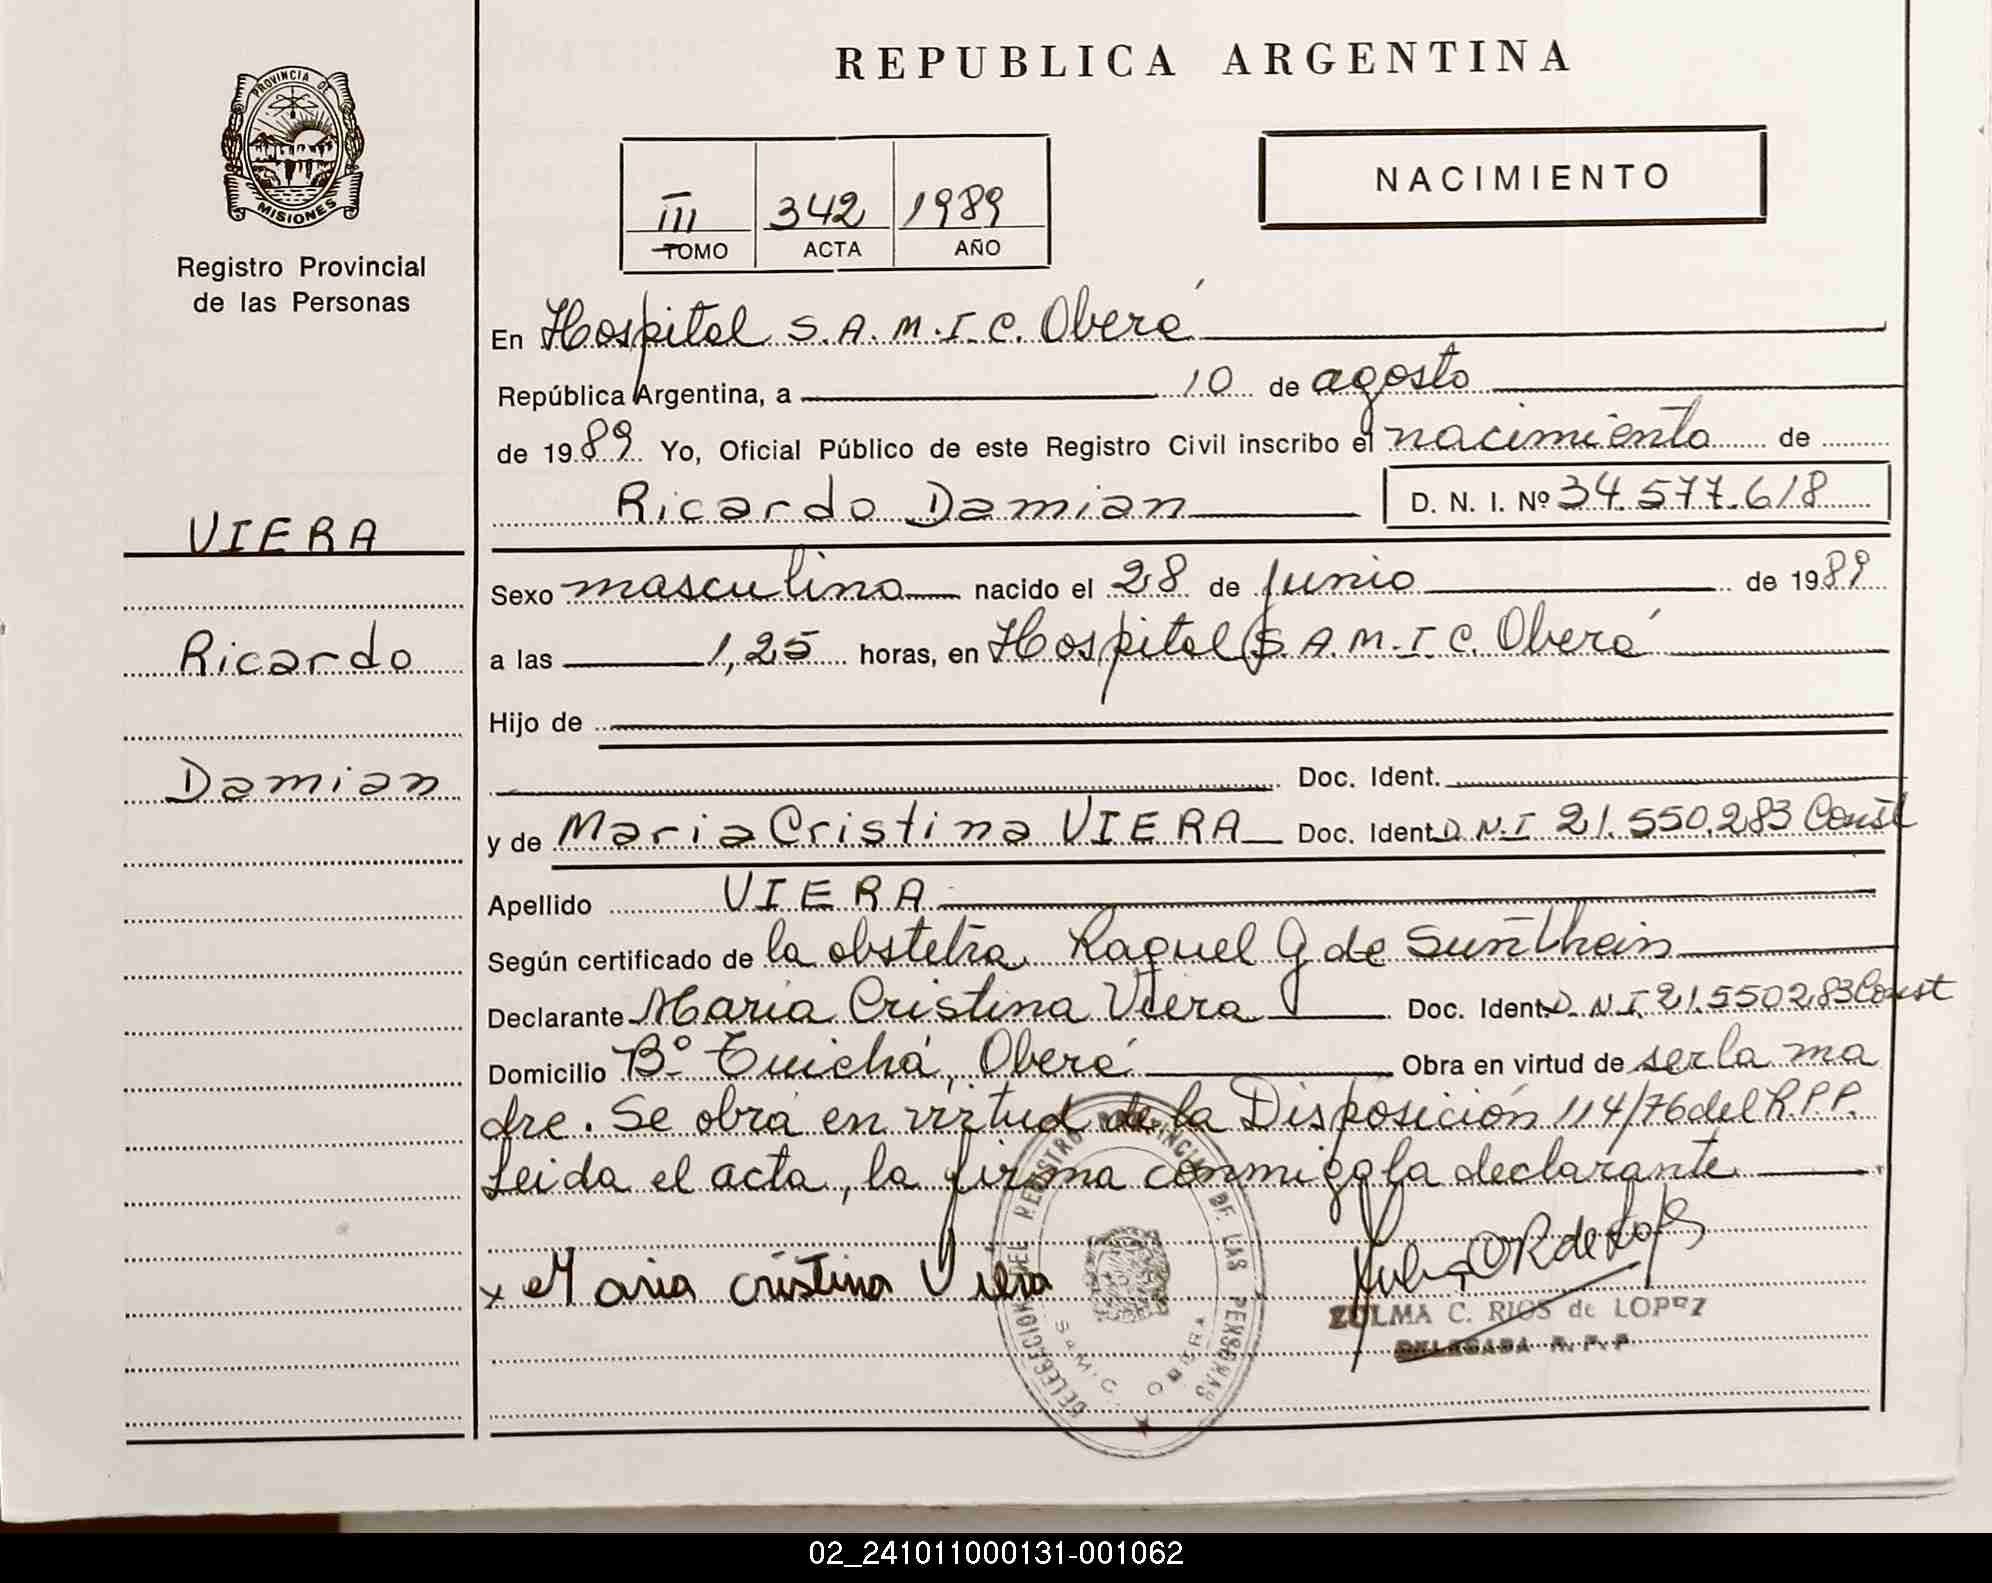 REPUBLICA ARGENTINA
PROVINCIA DE
MISIONES
Registro Provincial
de las Personas
NACIMIENTO
III 342 1989
TOMO ACTA AÑO
En Hospital S.A.M.I.C. Oberá
República Argentina, a 10 de agosto
de 1989 Yo, Oficial Público de este Registro Civil inscribo el nacimiento de
Ricardo Damian D. N. I. Nº 34.577.618
VIERA
Ricardo
Damian
Sexo masculino nacido el 28 de junio de 1989
a las 1,25 horas, en Hospital S.A.M.I.C. Oberá
Hijo de
Doc. Ident.
y de Maria Cristina VIERA Doc. Ident. D.N.I 21.550.283 Const
Apellido VIERA
Según certificado de la obstetra Raquel G de
Declarante Maria Cristina Viera Doc. Ident. D.N.I. 21.550.283 Const
Domicilio Bº Tuichá, Oberá Obra en virtud de ser la ma
dre. Se obra en virtud de la Disposición 114/76 del R.P.P.
Leida el acta, la firma conmigo la declarante
x Maria cristina Viera
ZULMA C. RIOS de LOPEZ
DELEGADA R.P.P.
DELEGACION DEL REGISTRO PROVINCIAL DE LAS PERSONAS
S.A.M.I.C. OBERA
02_241011000131-001062